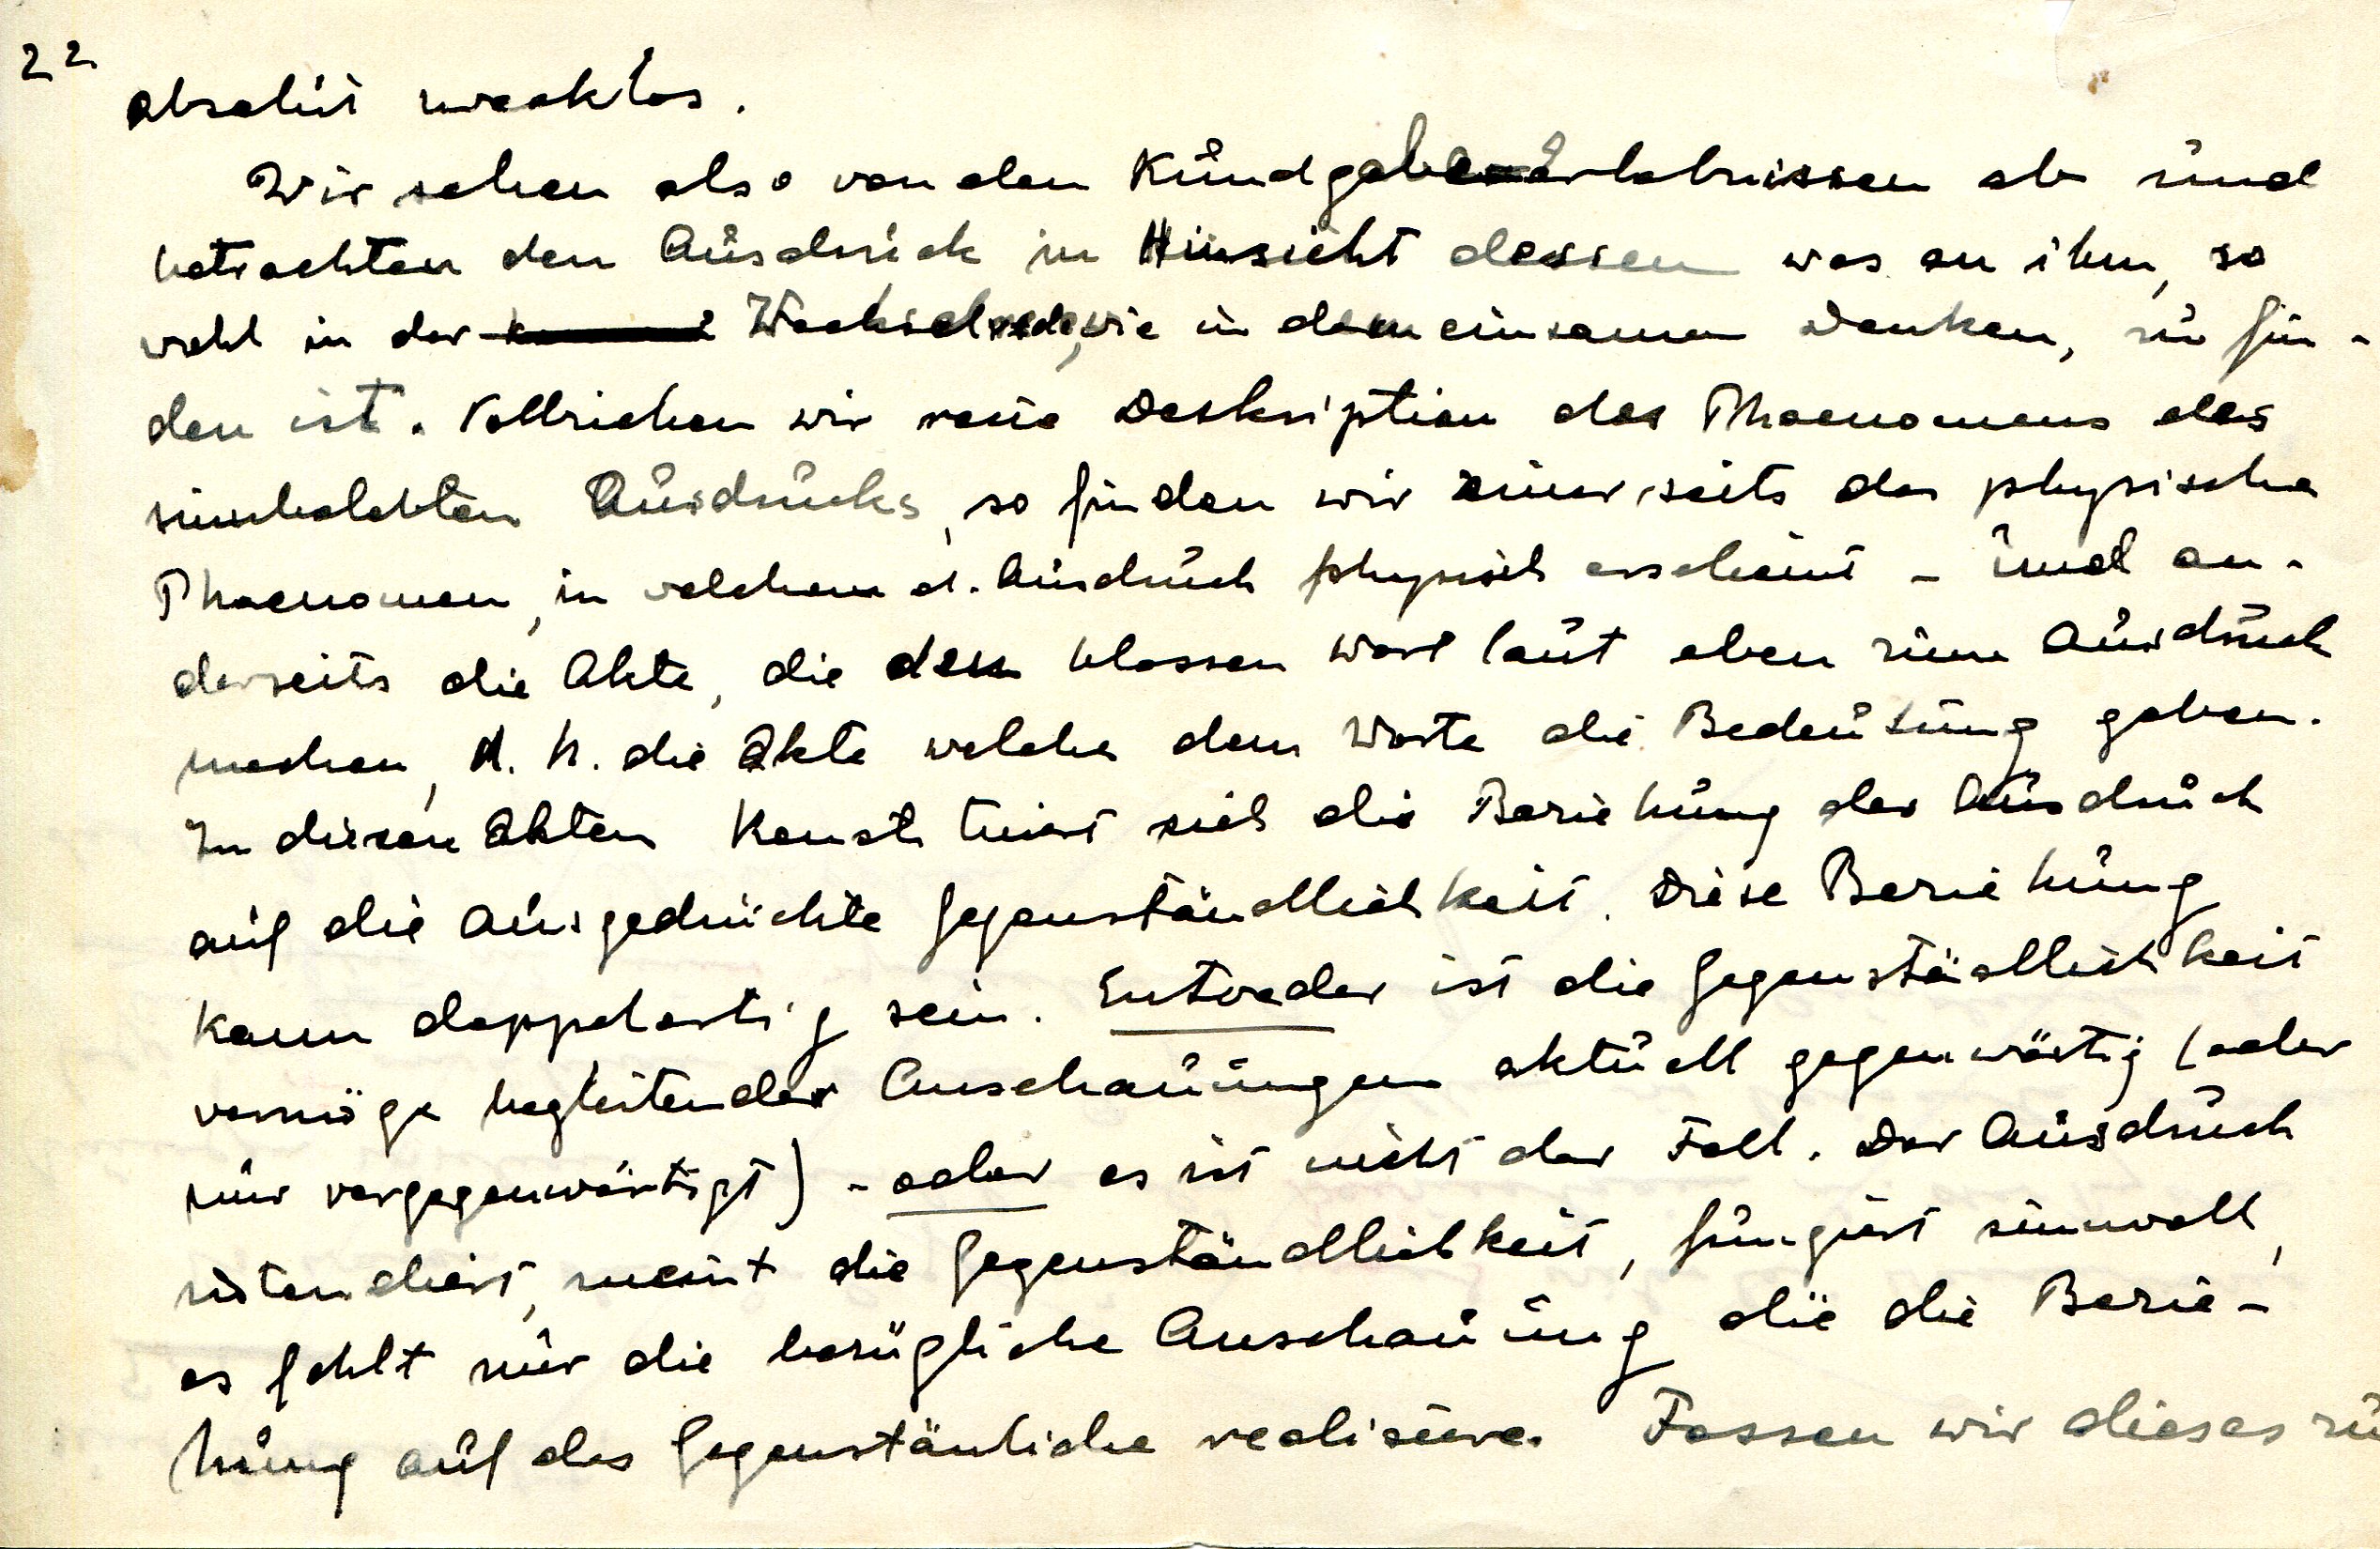 22
absolut zwecklos.
Wir sehen also von den Kundgabeerlebnissen ab und
betrachten den Ausdruck in Hinsicht dessen was an ihm, so
wohl in der Wechselrede, wie in dem einsamen Denken, zu fin-
den ist. Vollziehen wir reine Deskription des Phaenomens des
sinnbelebten Ausdrucks, so finden wir einerseits das physische
Phaenomen, in welchem d. Ausdruck physisch erscheint - und an-
derseits die Akte, die den blossen Wortlaut eben zum Ausdruck
machen, d. h. die Akte welche dem Worte die Bedeutung geben.
In diesen Akten konstituiert sich die Beziehung der Ausdruck
auf die ausgedrückte Gegenständlichkeit. Diese Beziehung
kann doppelartig sein. Entweder ist die Gegenstädlichkeit
vermöge begleitender Anschauungen aktuell gegenwärtig (oder
nur vergegenwärtigt) - oder es ist nicht der Fall. Der Ausdruck
meint die Gegenständlichkeit, fungiert sinnvoll,
es fehlt nur die bezügliche Anschauung die die Bezie-
hung auf das Gegenstänliche realisiere. Fassen wir dieses zu